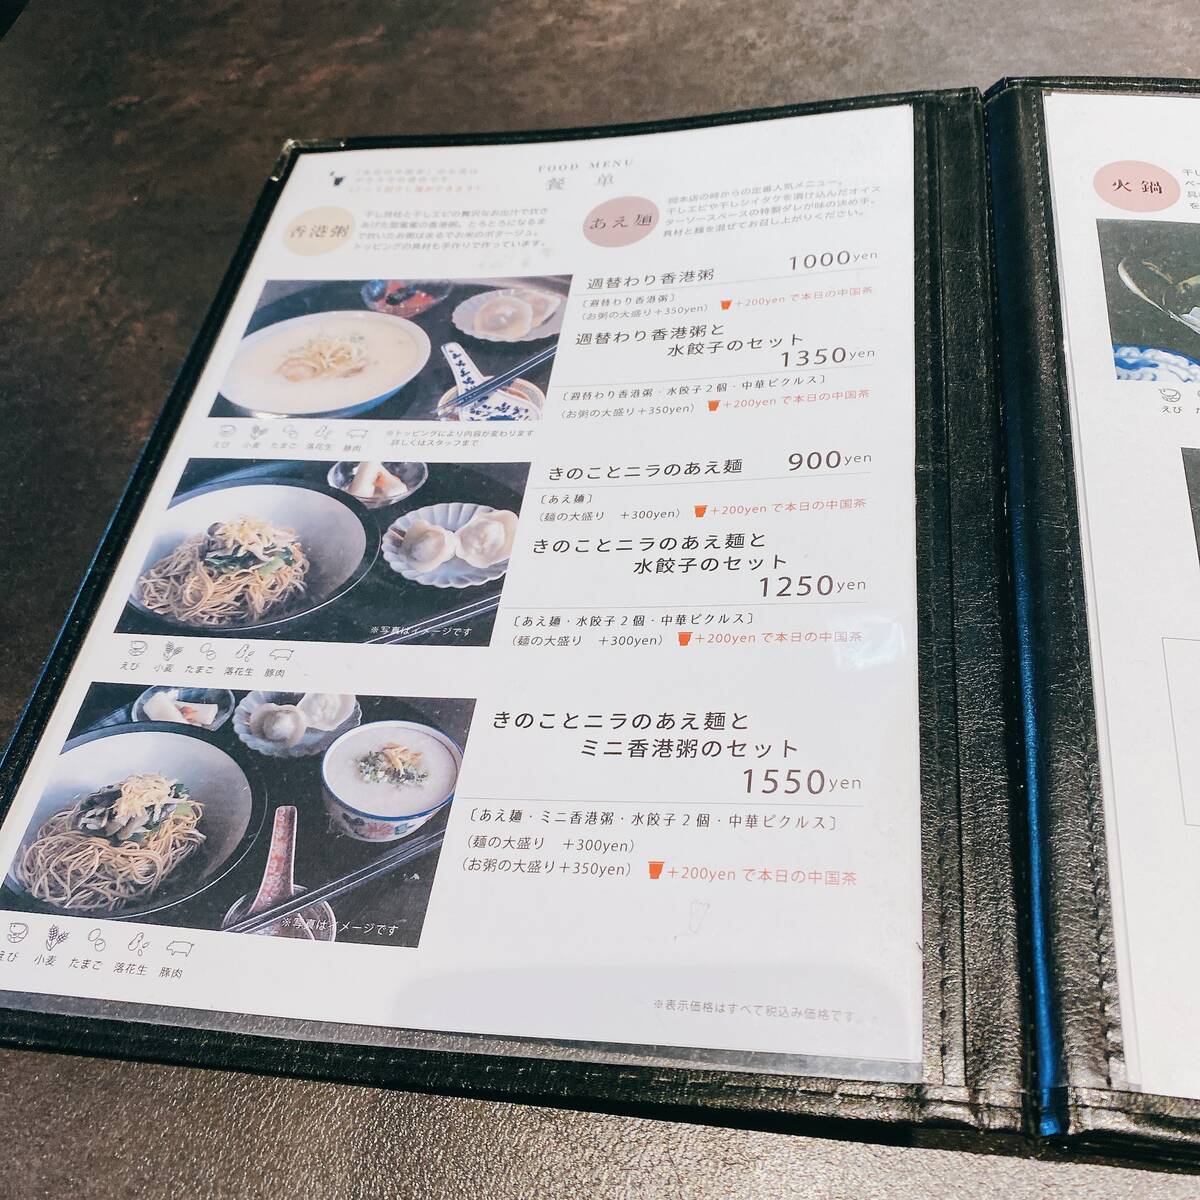 FOOD MENU
餐 单
香港粥
干し貝柱と干しエビの贅沢なお出汁で炊き
あげた甜蜜蜜の香港粥。とろとろになるま
で炊いたお粥はまるでお米のポタージュ。
トッピングの具材も手作りで作っています。
あえ麺
岡本店の時からの定番人気メニュー。
干しエビや干しシイタケを漬け込んだオイス
ターソースベースの特製ダレが味の決め手。
具材と麺を混ぜてお召し上がりください。
週替わり香港粥 1000yen
〔週替わり香港粥〕
(お粥の大盛り+350yen) +200yenで本日の中国茶
週替わり香港粥と
水餃子のセット
1350yen
〔週替わり香港粥・水餃子2個・中華ピクルス〕
(お粥の大盛り+350yen) +200yenで本日の中国茶
えび 小麦 たまご 落花生 豚肉
※トッピングにより内容が変わります
詳しくはスタッフまで
きのことニラのあえ麺 900yen
〔あえ麺〕
(麺の大盛り +300yen) +200yenで本日の中国茶
きのことニラのあえ麺と
水餃子のセット
1250yen
〔あえ麺・水餃子2個・中華ピクルス〕
(麺の大盛り +300yen) +200yenで本日の中国茶
※写真はイメージです
えび 小麦 たまご 落花生 豚肉
きのことニラのあえ麺と
ミニ香港粥のセット
1550yen
〔あえ麺・ミニ香港粥・水餃子2個・中華ピクルス〕
(麺の大盛り +300yen)
(お粥の大盛り+350yen) +200yenで本日の中国茶
※写真はイメージです
えび 小麦 たまご 落花生 豚肉
※表示価格はすべて税込み価格です。
火鍋
干し
ベー
具
を
えび